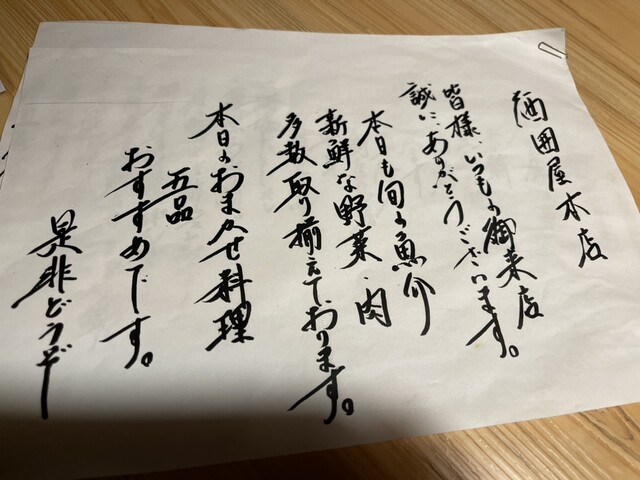 屋本店
皆様、いつもの御来店
誠に、ありがとうございます。
本日も旬の魚介
新鮮な野菜・肉
多数取り揃えております。
本日のおまかせ料理
五品
おすすめです。
是非どうぞ